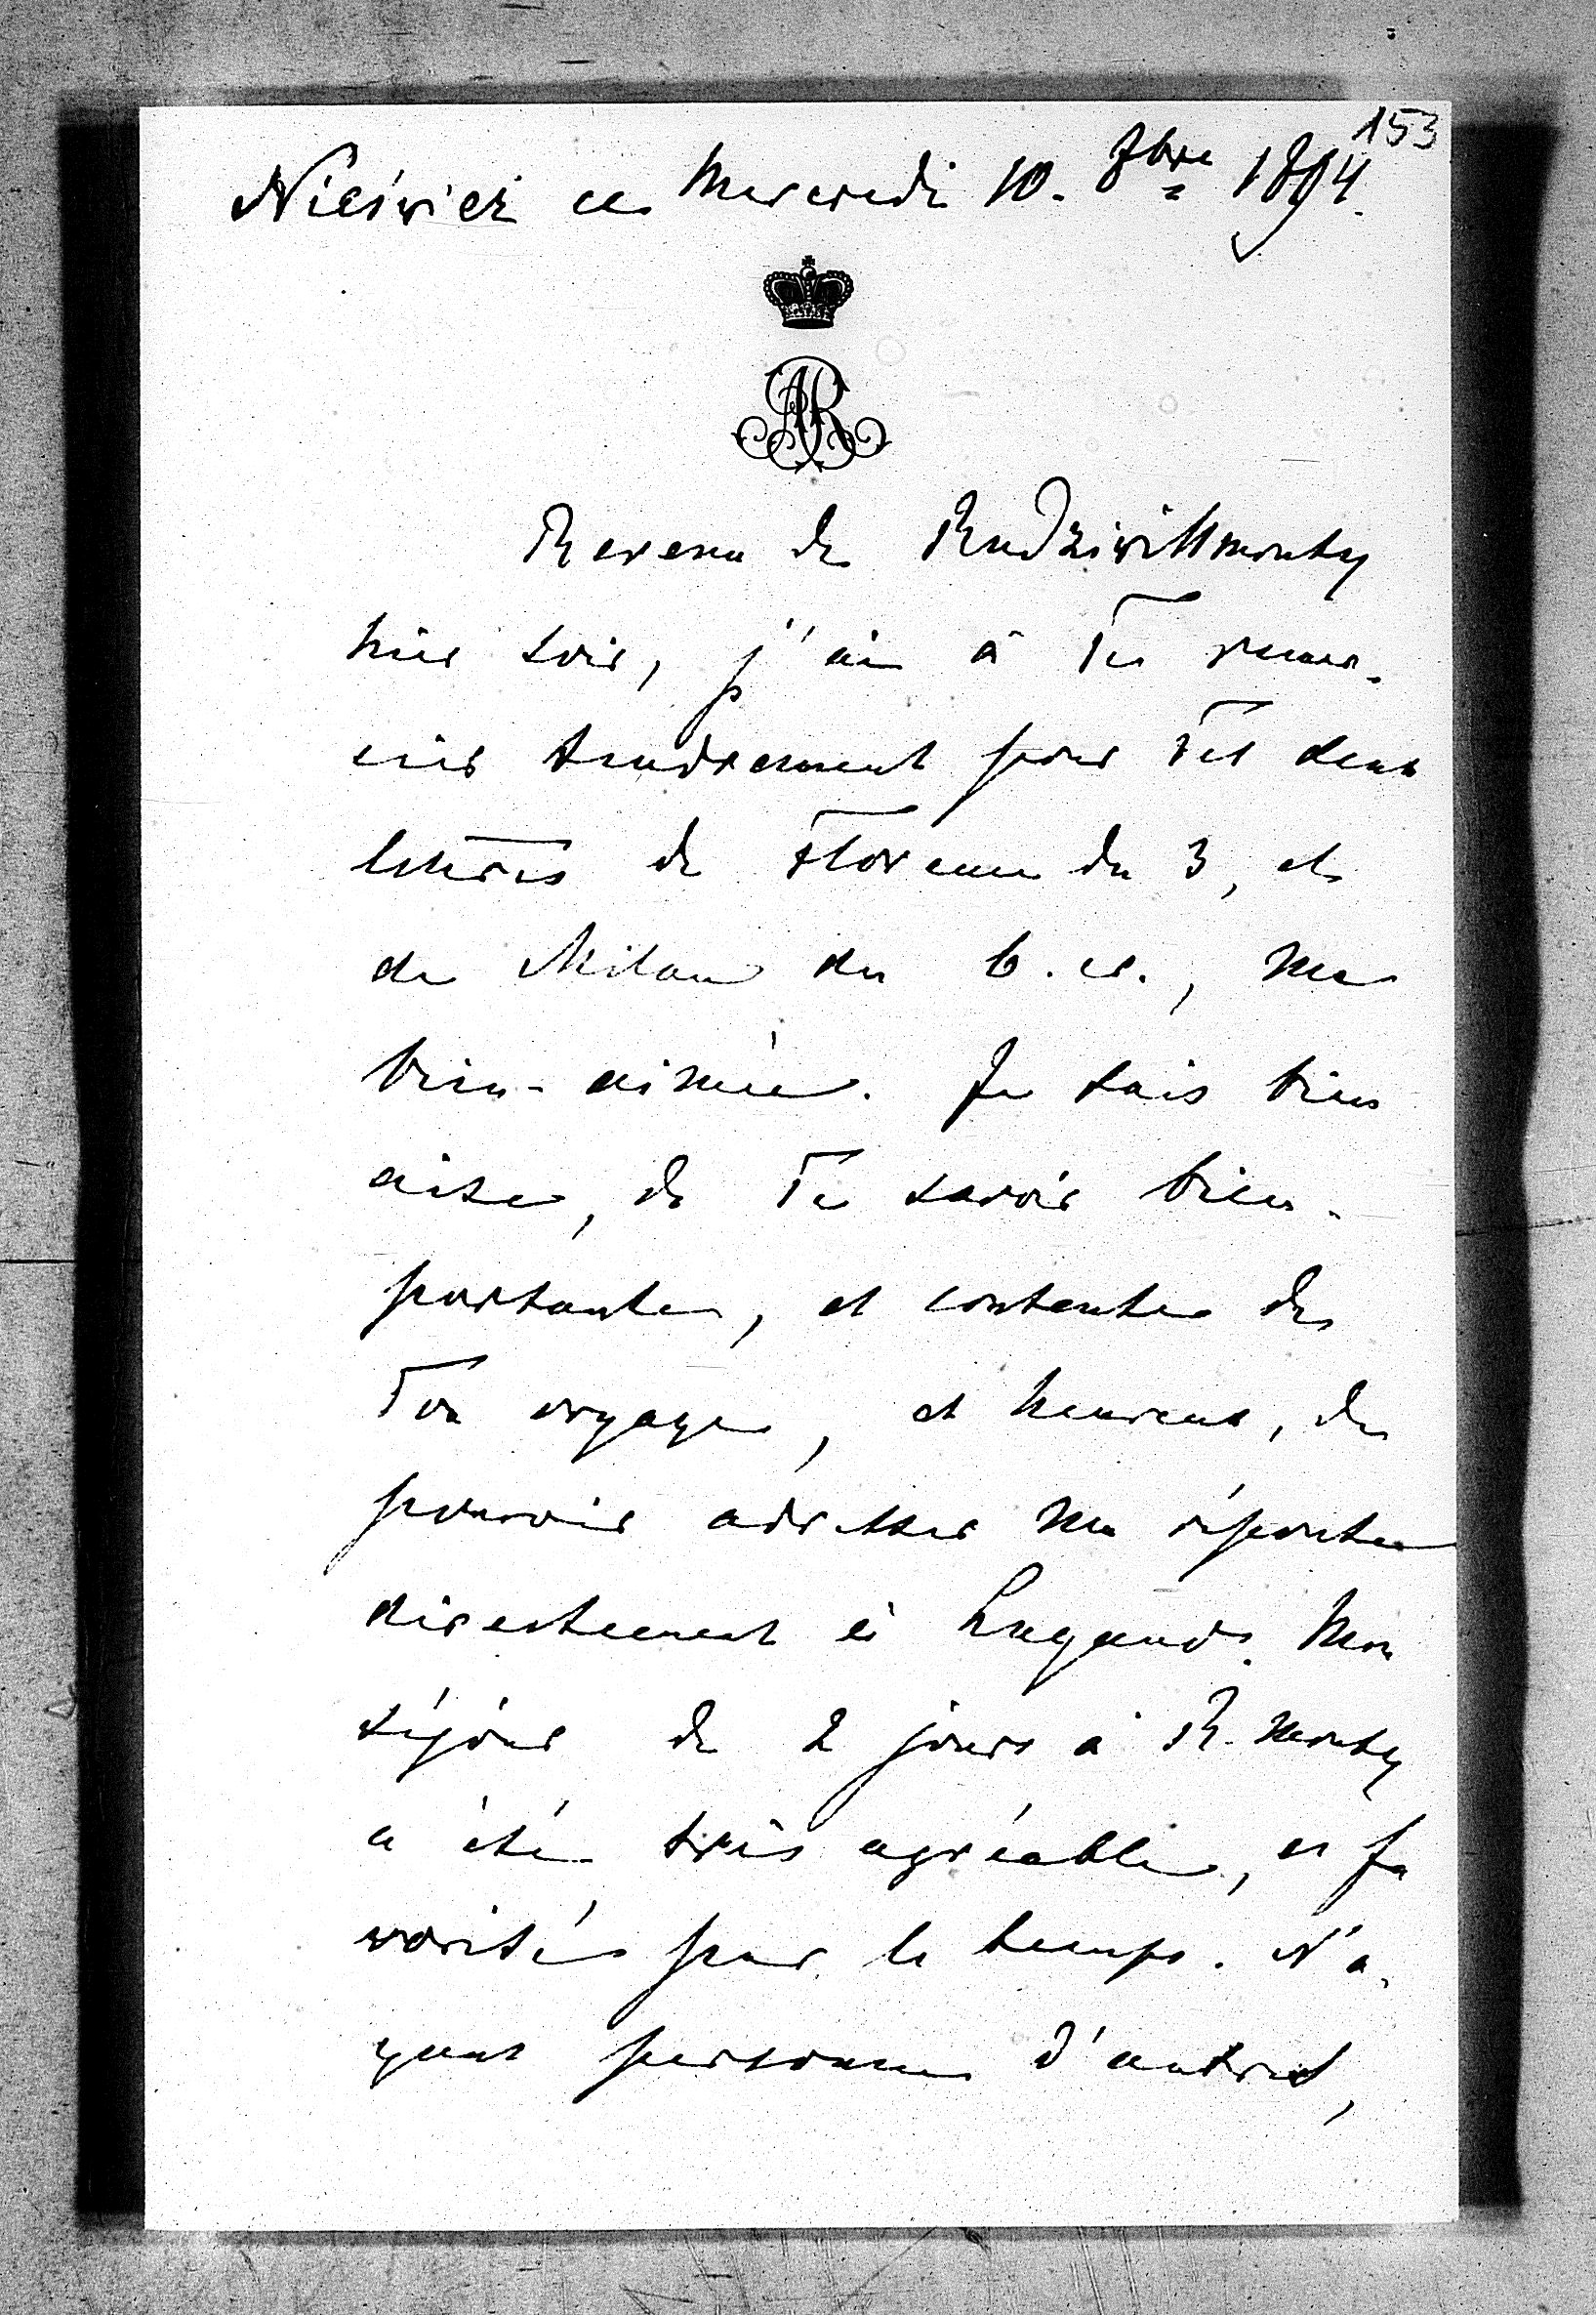 153
Nieśwież ce Mercredi 10. 8bre 1894.
AR
Revenu de Radziwiłłmonty
hier soir, j'ai à Te remer-
cier tendrement pour Tes deux
lettres de Florence du 3, et
de Milan du 6. cr., ma
bien-aimée. Je suis bien
aise, de Te savoir bien-
portante, et contente de
Ton voyage, et heureux, de
pouvoir adresser ma réponse
directement à Lugano. Mon
séjour de 2 jours à R. monty
a été très agréable, et fa
vorisé par le temps. N'a-
yant personne d'autres,